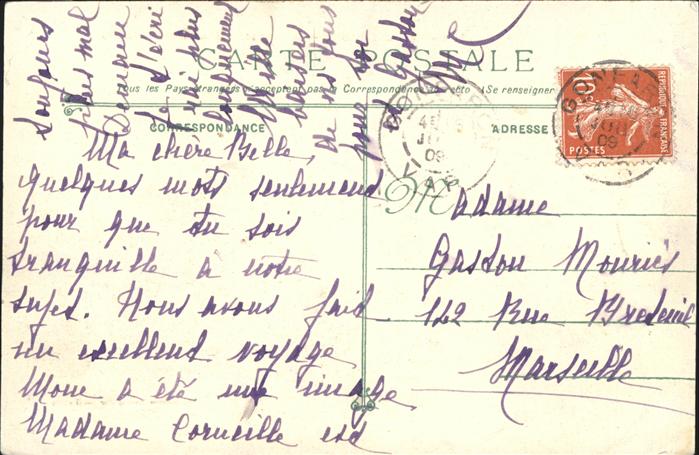 CARTE POSTALE
Tous les Pays étrangers n'acceptent pas la Correspondance au recto (Se renseigner
CORRESPONDANCE
ADRESSE
Ma chère Belle,
quelques mots seulement
pour que tu sois
tranquille à notre
sujet. Nous avons fait
un excellent voyage
Mone a été une image
Madame Corneille est
toujours
plus mal
Demain
je t'écri
rai plus
longuement
Mille
baisers
de nous tous
pour
Gaston
Madame
Gaston Mouriès
142 Rue Breteuil
Marseille
REPUBLIQUE FRANÇAISE
10
POSTES
GONFARON
09
VAR
09
VAR